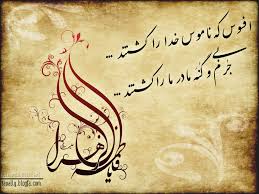 افسوس که ناموس خدا را کشتند ...
بی جرم و گنه مادر ما را کشتند ...
یا فاطمة الزهرا